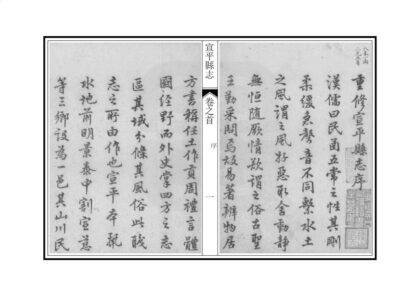 重修宣平縣志序
漢儒曰民函五常之性其剛
柔緩急聲音不同繫水土
之風謂之風好惡取舍動靜
無恒隨厥情欲謂之俗古聖
王勤采問焉故易著辨物居
宣平縣志
卷之首
序
一
方書稱任土作貢周禮言體
國經野而外史掌四方之志
區其域分條其風俗此職
志之所由作也宣平本𣗳
水地前明景泰中割宣慈
等三鄉設為一邑其山川民